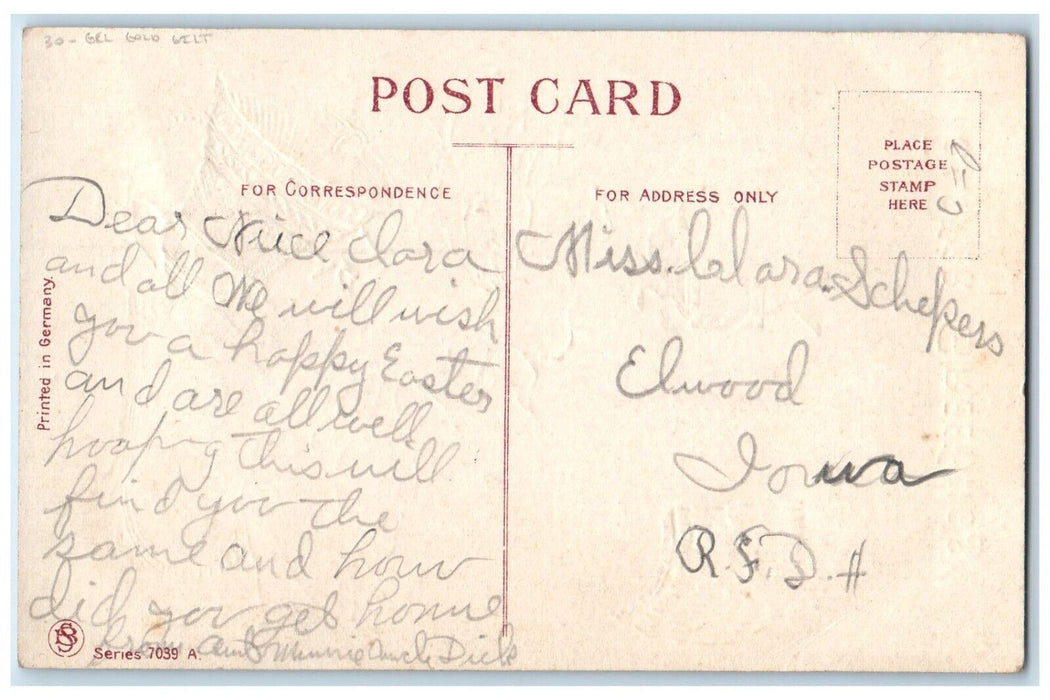 30- GEL GOLD GILT
POST CARD
FOR CORRESPONDENCE
FOR ADDRESS ONLY
PLACE
POSTAGE
STAMP
HERE
Dear Niice Clara
and all We will wish
you a happy Easter
and are all well
hooping this will
find you the
same and houw
did you get home
from aunt Minnie Uncle Dick
Miss. Clara Schepers
Elwood
Iowa
R.F.D. #
Printed in Germany.
SB
Series 7039 A.